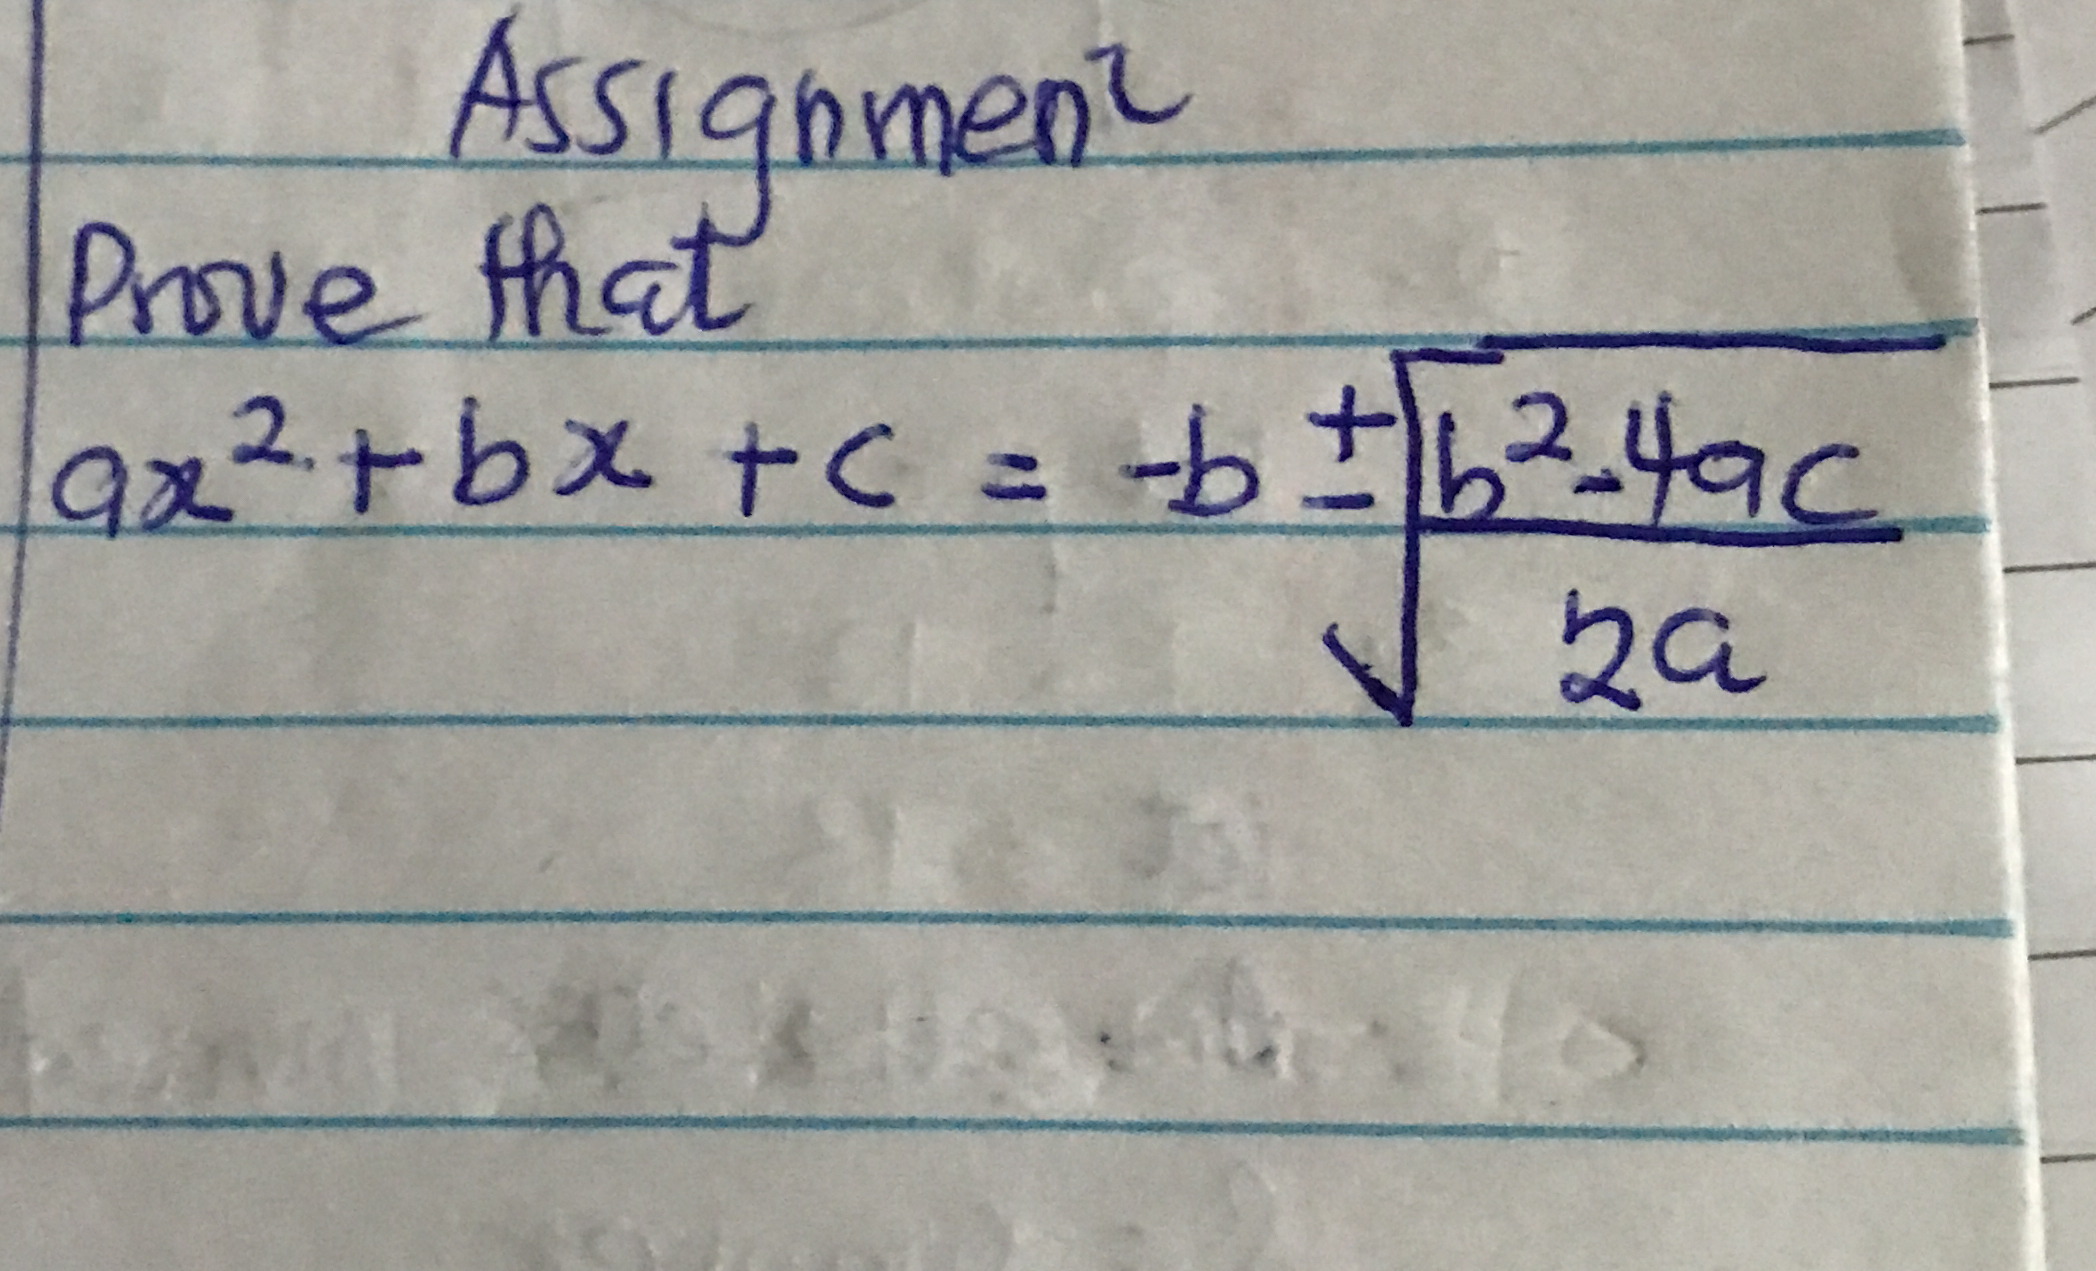 Assignment
Prove that
ax² + bx + c = -b ± √(b² - 4ac / 2a)